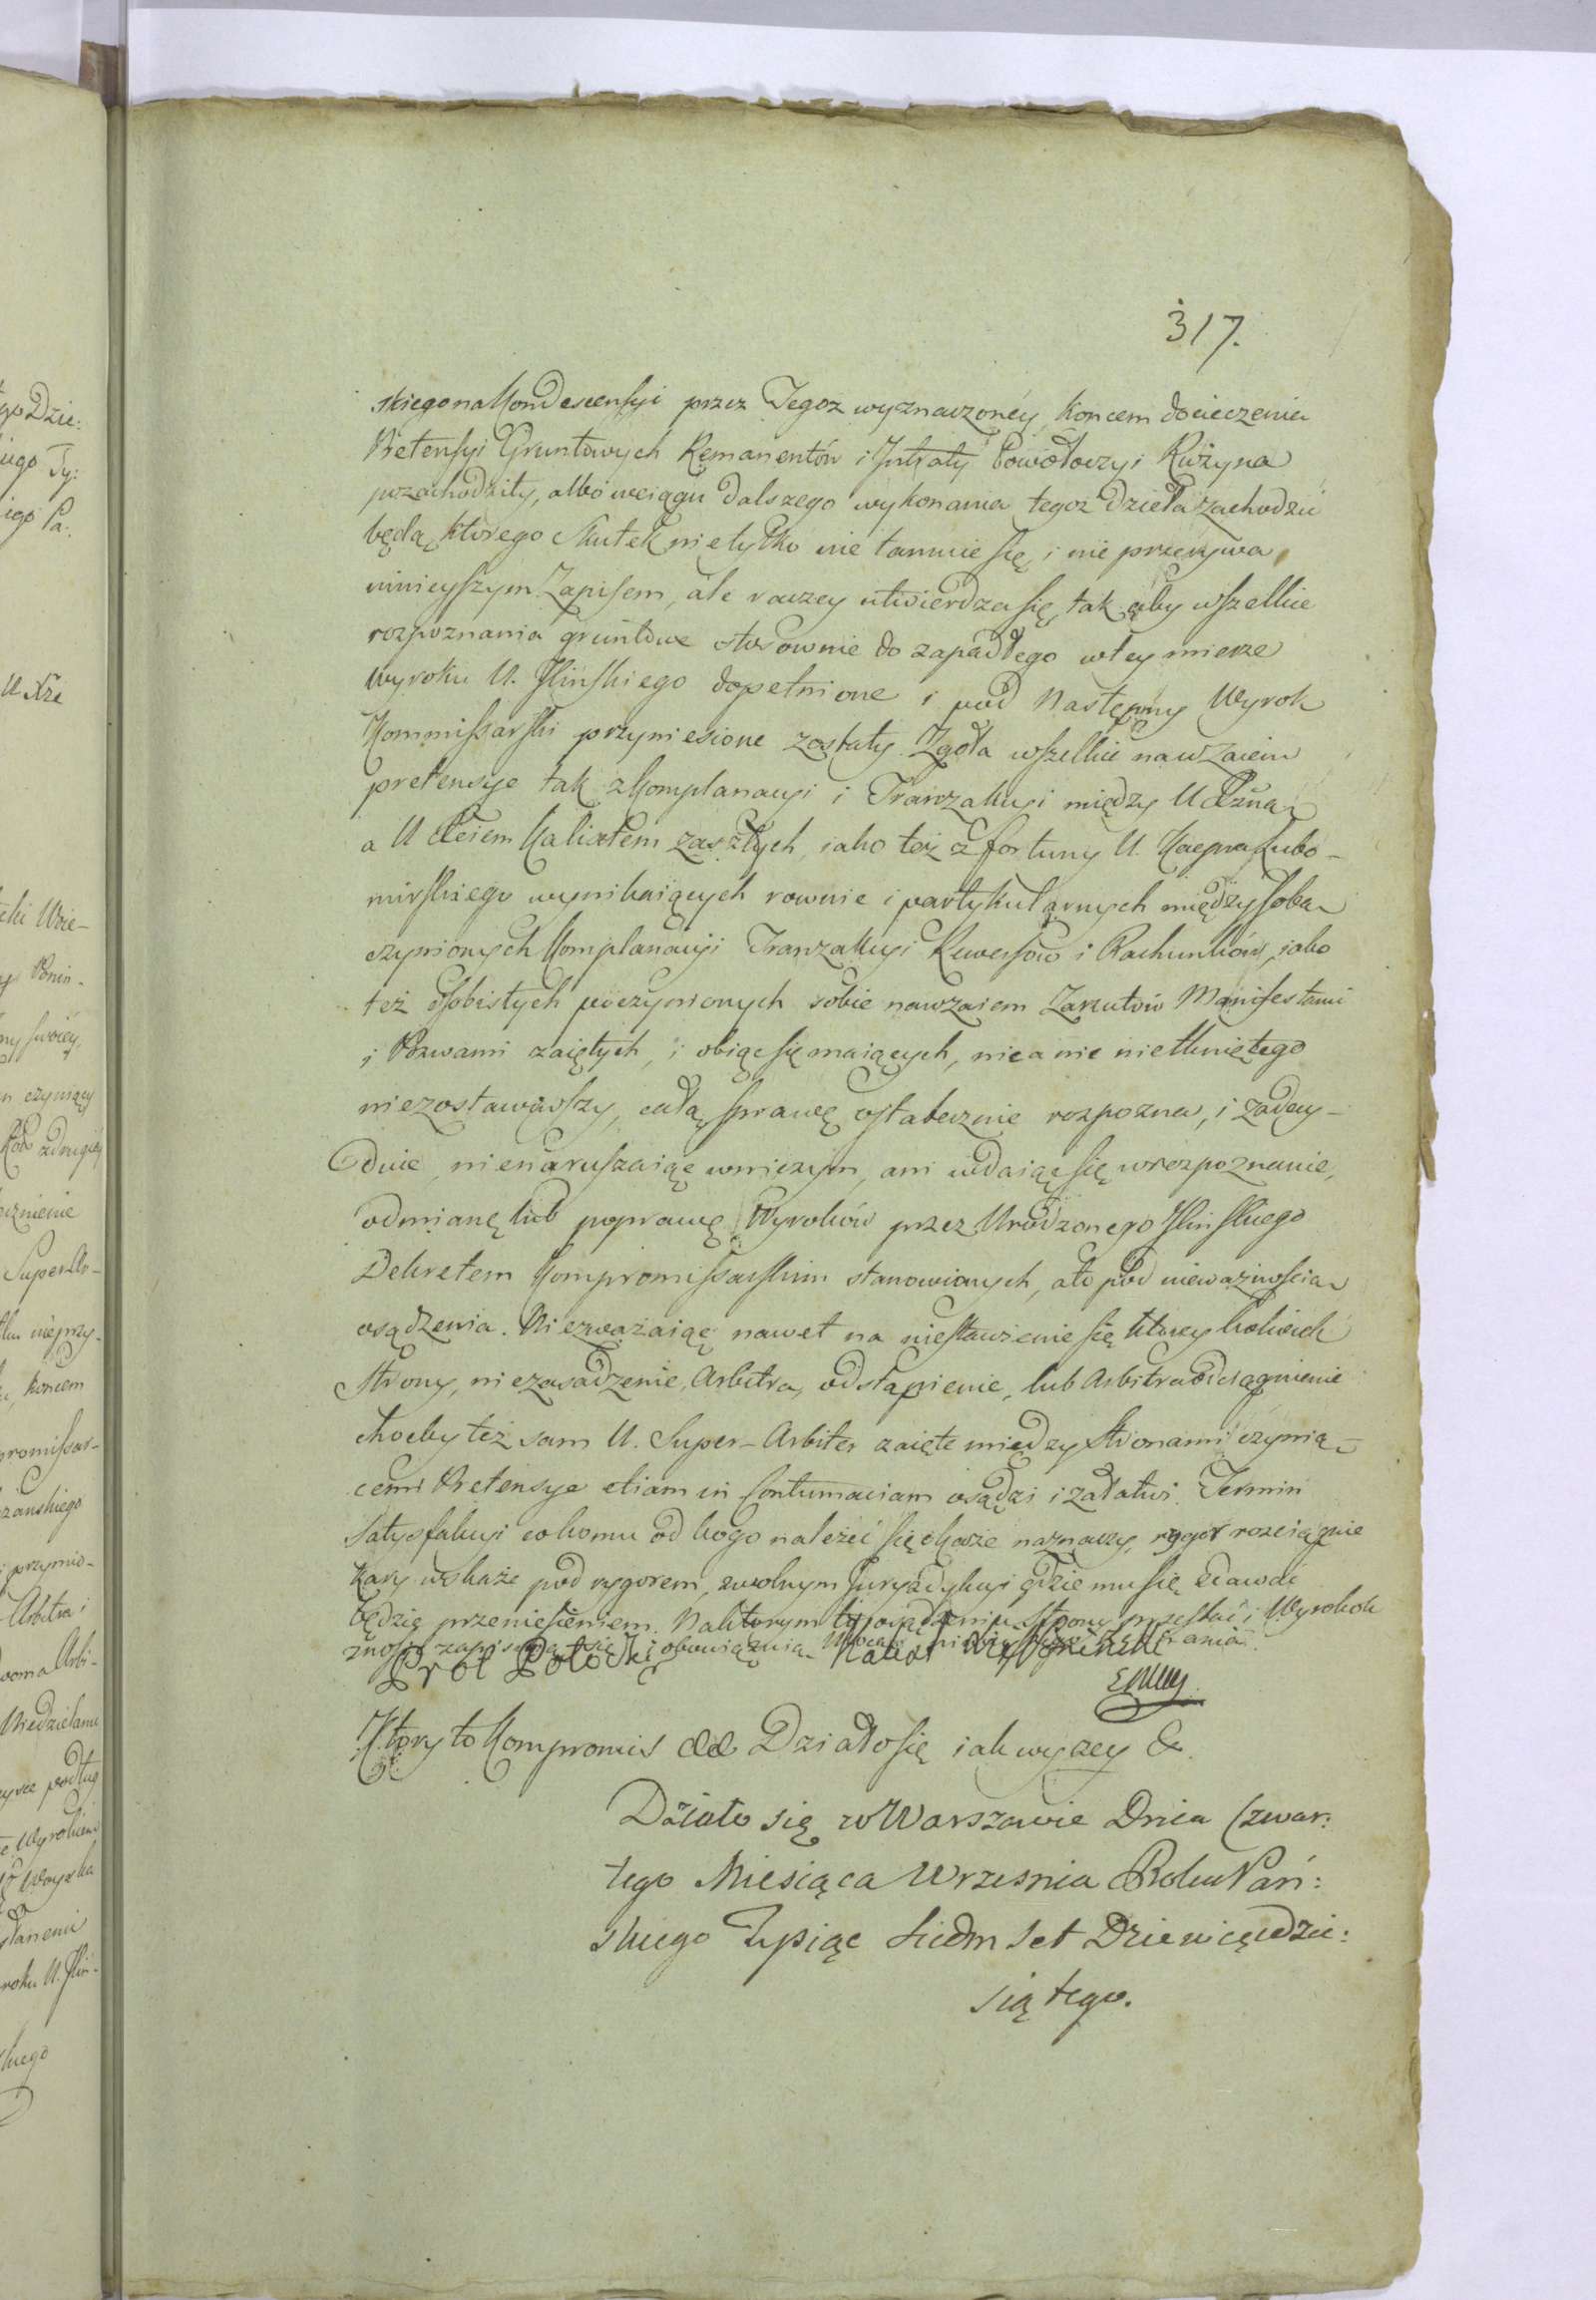 317.
skiego na Kondescensyi przez Tegoż wyznaczoney, koncem docieczenia
Pretensyi Gruntowych Remanentów i Intraty Powołoczy i Rużyna
przechodziły, albo wciągu dalszego wykonania tegoż dzieła zachodzić
będą, ktorego skutek nietylko nie tamuie się, i nie przerywa
ninieyszym Zapisem, ale raczey utwierdza się, tak aby wszelkie
rozpoznania gruntowe stosownie do zapadłego wtey mierze
Wyroku U. Ilinskiego dopełnione i pod następny Wyrok
Kommissarski przyniesione zostały. Zgoła wszelkie nawzaiem
pretensye tak z Komplanacyi i Tranzakcyi między U
a U Kalixtem zaszłych, iako też z fortuny U. Xcia Lubo-
mirskiego wynikaiących rownie i partykularnych między sobą
czynionych Komplanacyi Tranzakcyi Rewersów i Rachunków, iako
też osobistych poczynionych sobie nawzaiem Zarzutów Manifestami
i Pozwami zaiętych, i obiąć się maiących, nic a nic nietkniętego
niezostawiwszy, całą sprawę ostatecznie rozpozna, i zadecy-
duie, nienaruszaiąc wniczym, ani wdaiąc się w rozpoznanie,
odmianę lub poprawę Wyroków przez Urodzonego Ilinskiego
Dekretem Kompromissarskim stanowionych, a to pod nieważnością
osądzenia. Niezważaiąc nawet na niestawienie się ktorey kolwiek
strony, niezasadzenie Arbitra, odstąpienie, lub Arbitra odciągnienie
choćby też sam U. Super-Arbiter zaięte między stronami czynią-
cemi Pretensye etiam in Contumaciam osądzi i załatwi. Termin
Satysfakcyi co komu od kogo należeć się okaże naznaczy, rygor rozciągnie
kary wskaże pod rygorem, zwolnym Juryzdykcyi gdzie mu się zdawać
będzie przeniesieniem. Naktorym to osądzeniu strony przestać i Wyrokok
znosić zapisuią się i obowiązuią
Prot Potocki Kalixt Xże Poninski
Któryto Kompromis &&& Działo się iak wyzey &
Działo się w Warszawie Dnia Czwar:
tego Miesiąca Wrzesnia Roku Pań:
skiego Tysiąc Siedm Set Dziewięćdzie:
siątego.